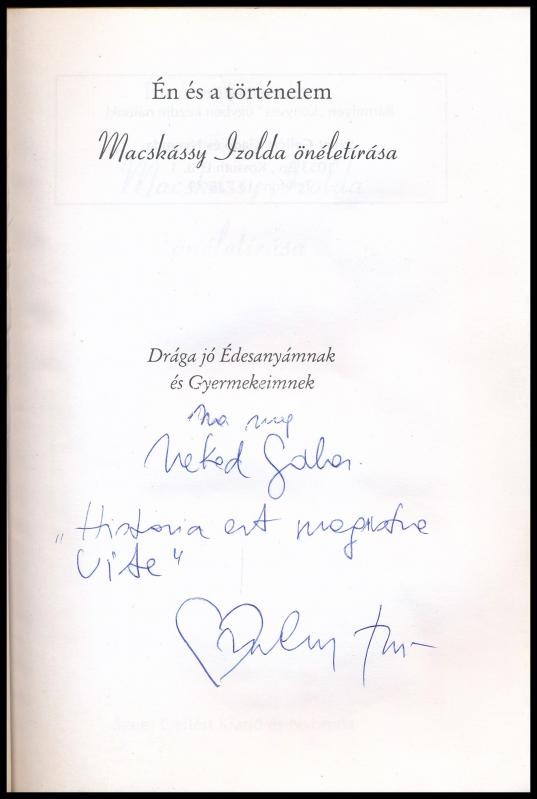 Én és a történelem
Macskássy Izolda önéletírása
Drága jó Édesanyámnak
és Gyermekeimnek
na meg
Neked Gábor.
„Historia est magistra
Vite"